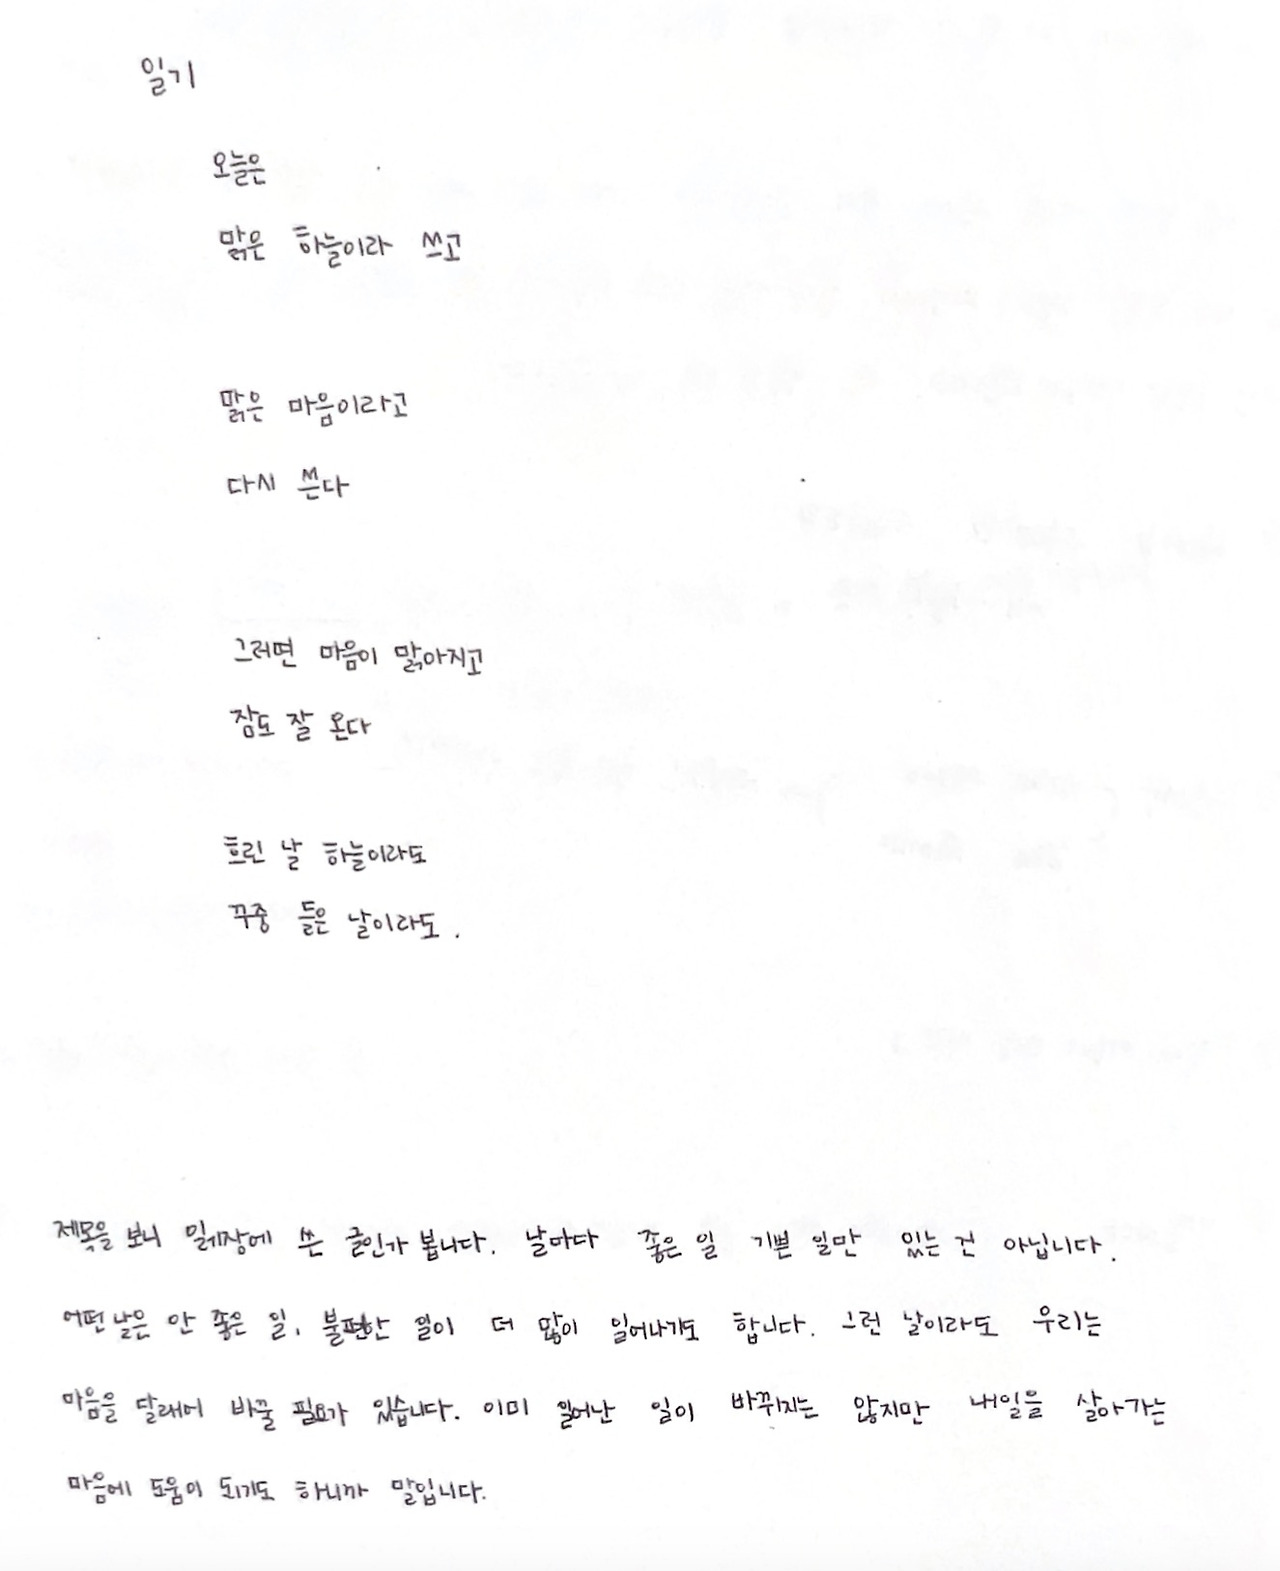 일기
오늘은
맑은 하늘이라 쓰고
맑은 마음이라고
다시 쓴다
그러면 마음이 맑아지고
잠도 잘 온다
흐린 날 하늘이라도
꾸중 들은 날이라도.
제목을 보니 일기장에 쓴 글인가 봅니다. 날마다 좋은 일 기쁜 일만 있는 건 아닙니다.
어떤 날은 안 좋은 일, 불편한 일이 더 많이 일어나기도 합니다. 그런 날이라도 우리는
마음을 달래어 바꿀 필요가 있습니다. 이미 일어난 일이 바뀌지는 않지만 내일을 살아가는
마음에 도움이 되기도 하니까 말입니다.